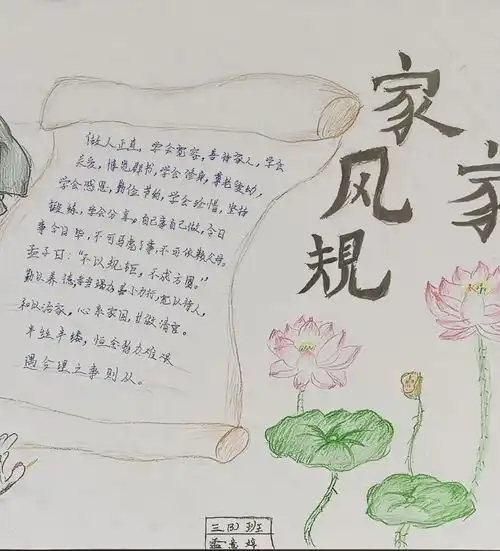 家
风
规
家
做人正直，学会宽容，善待家人，学会
关爱，博览群书，学会健康，尊老爱幼，
学会感恩，勤俭节约，学会珍惜，坚持
锻炼，学会分享。自己事自己做，今日
事今日毕，不可马虎了事，不可依赖父母。
孟子曰："不以规矩，不成方圆。"
勤以养德，孝当竭力，善小力行，宽以待人，
和以治家，心系家国，甘做清官。
半丝半缕，恒念物力难艰
遇合理之事则从。
三(3)班
孟意